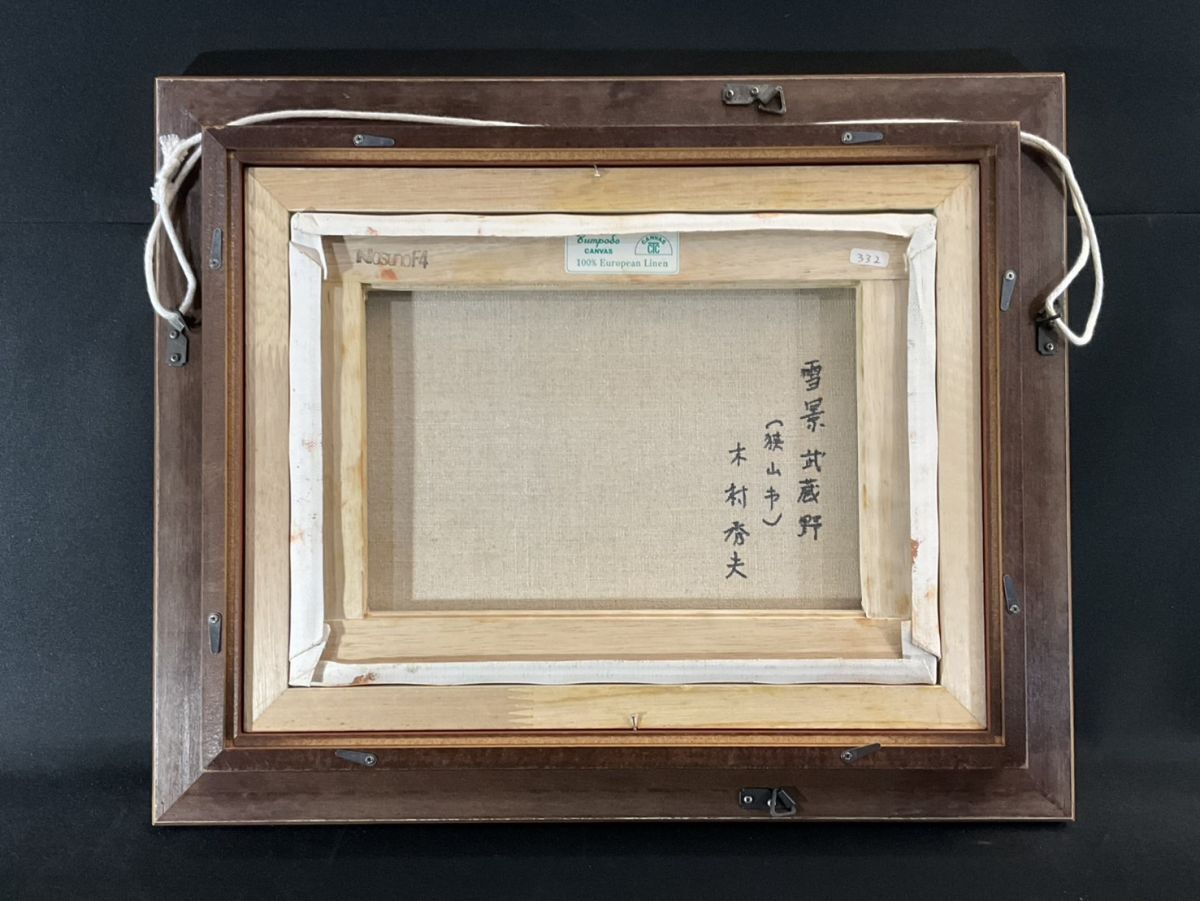 NasunoF4
Bumpodo
CANVAS
CANVAS
CTC
100% European Linen
332
雪景 武蔵野
(狭山市)
木村秀夫